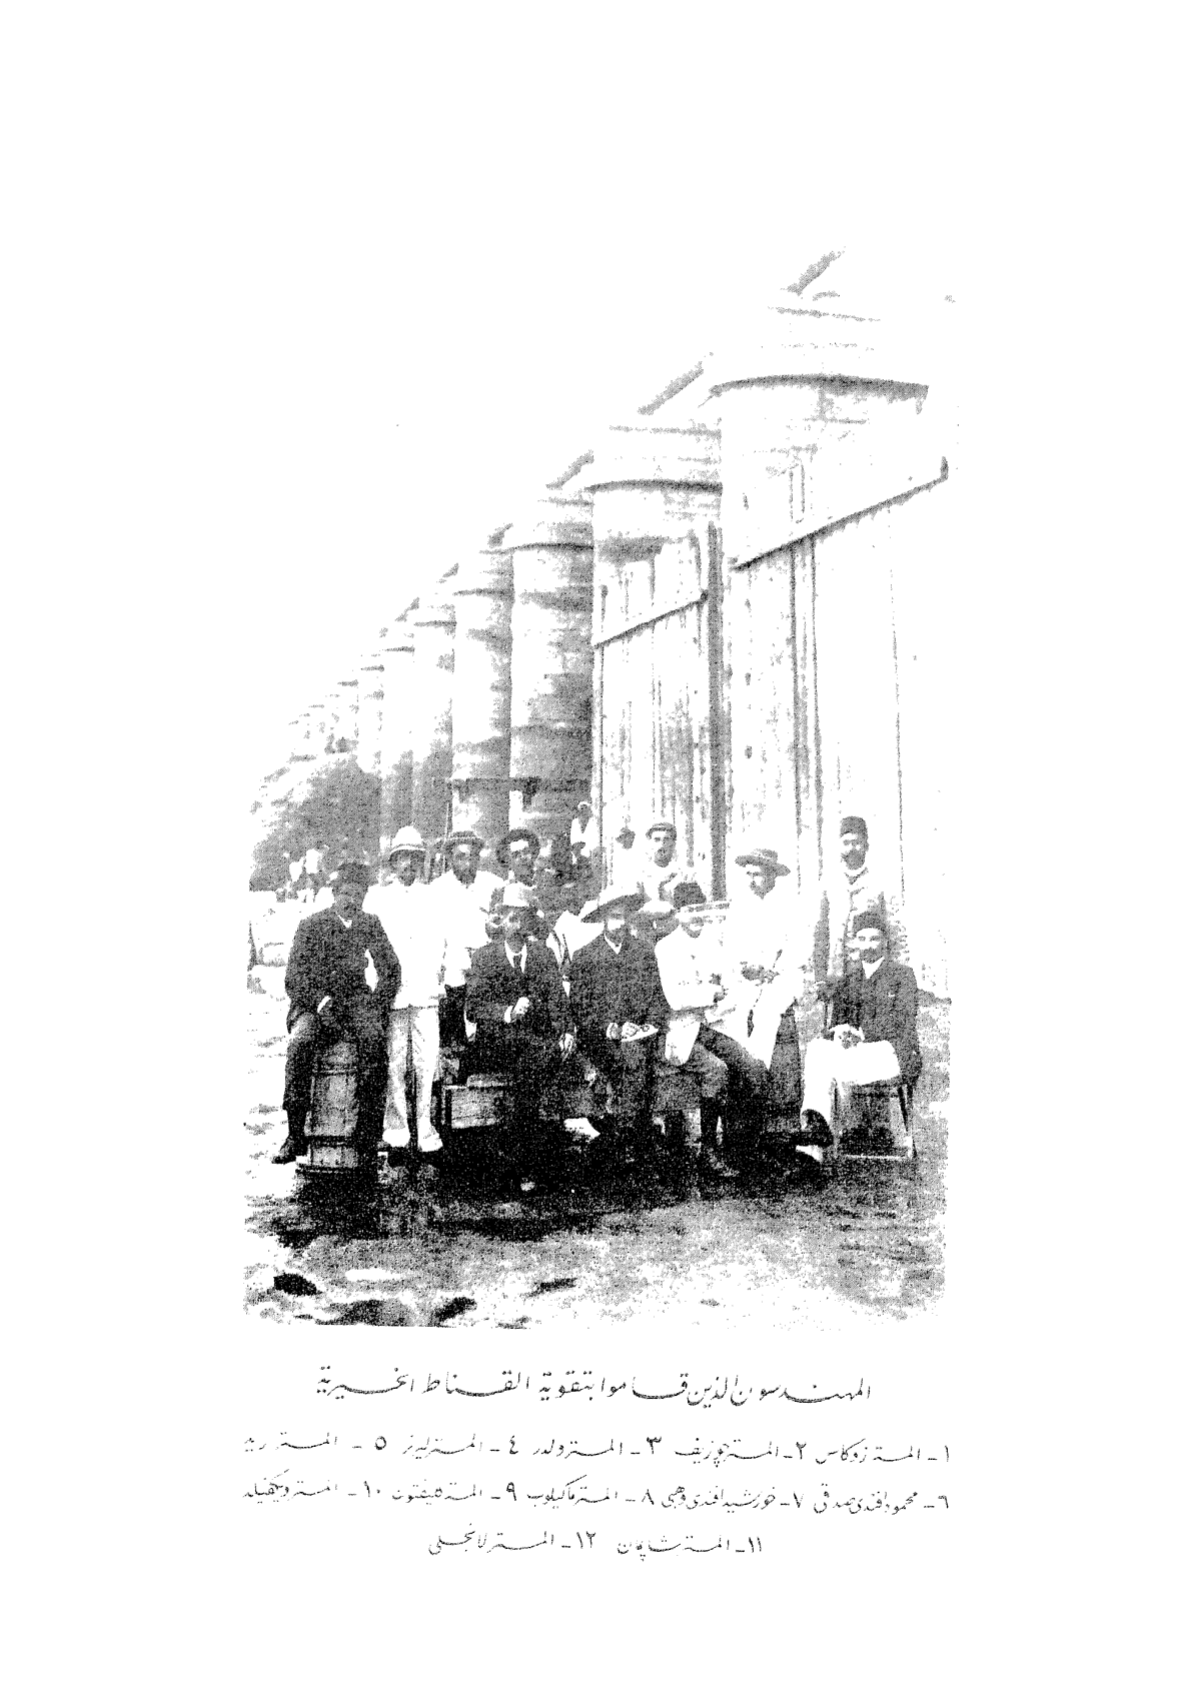 المهندسون الذين قاموا بتقوية القناطر الخيرية
١- المستر زوكاس ٢- المستر جوزيف ٣- المستر ولدر ٤- المستر ليرنر ٥- المستر ريد
٦- محمود افندى صدقى ٧- خورشيد افندى وهبى ٨- المستر ماكيلوب ٩- المستر ١٠- المستر
١١- المستر شابمان ١٢- المستر لانجلى